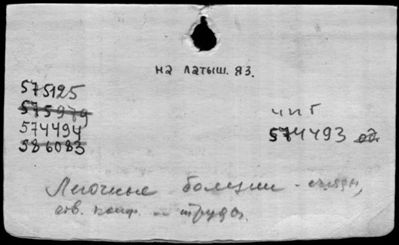 на латыш. яз.
575125
575979
574494
586083
чиг
574493 од.
Легочные болезни -
конф. - труды.